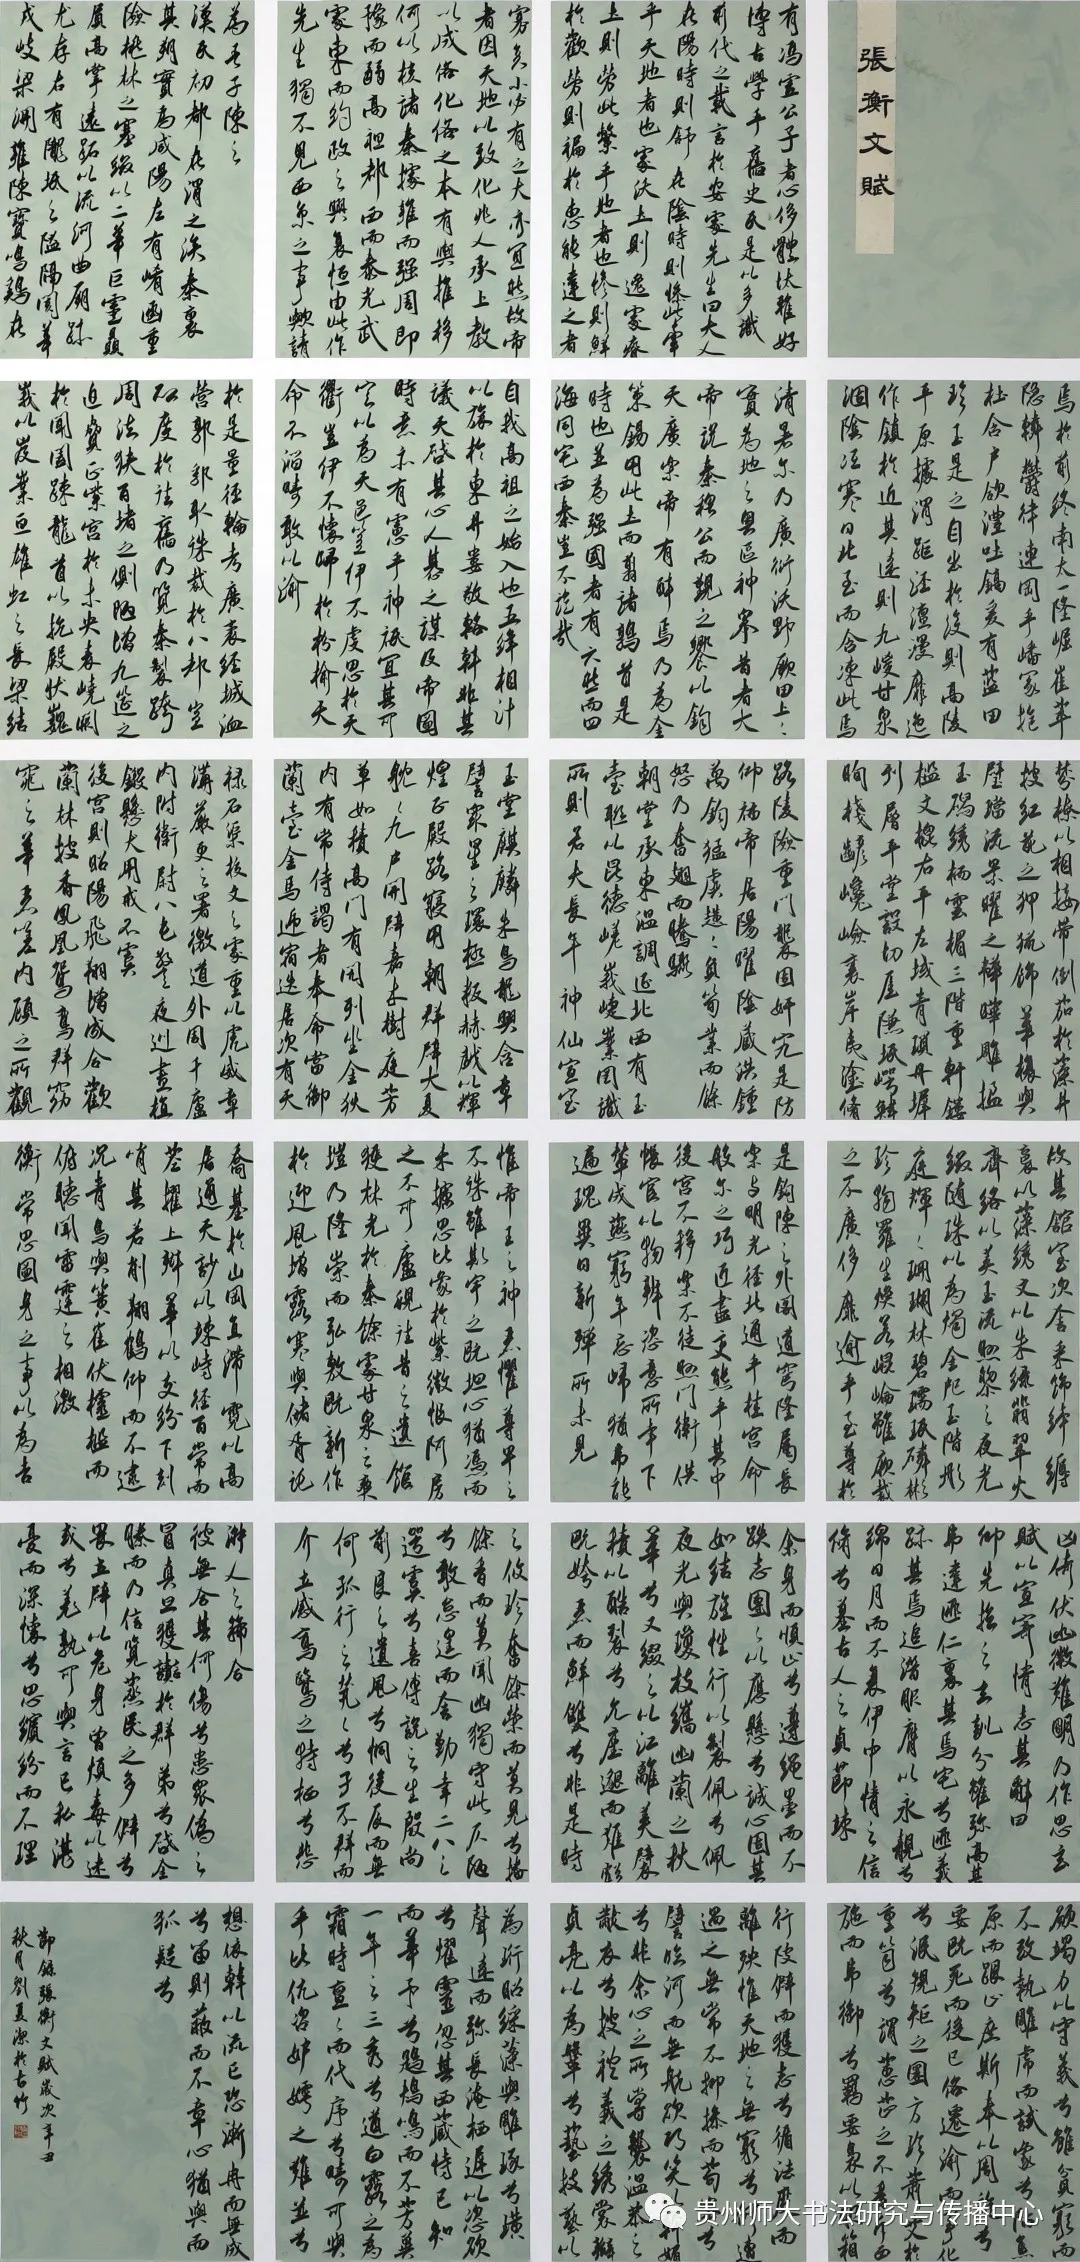 張衡文賦
有馮虛公子者心侈體忲雅好
博古學乎舊史氏是以多識
前代之載言於安處先生曰夫人
在陽時則舒在陰時則慘此牽
乎天地者也處沃土則逸處瘠
土則勞此繫乎地者也慘則鮮
於歡勞則褊於惠能違之者
寡矣小必有之大亦宜然故帝
者因天地以致化兆人承上教
以成俗化俗之本有與推移
何以核諸秦據雍而强周即
豫而弱高祖都西而泰光武
處東而約政之興衰恒由此作
先生獨不見西京之事歟請
為吾子陳之
漢氏初都在渭之涘秦裏
其朔實為咸陽左有崤函重
險桃林之塞綴以二華巨靈贔
屭高掌遠跖以流河曲厥跡
尤存右有隴坻之隘隔閡華
戎岐梁汧雍陳寶鳴雞在
焉於前終南太一隆崛崔崒
隱轔鬱律連岡乎嶓冢抱
杜含戶欲澧吐鎬爰有藍田
珍玉是之自出於後則高陵
平原據渭踞涇澶漫靡迤
作鎮於近其遠則九嵕甘泉
涸陰沍寒日北至而含凍此焉
清暑尔乃廣衍沃野厥田上上
實為地之奧區神皋昔者大
帝說秦穆公而覲之饗以鈞
天廣樂帝有醉焉乃為金
策錫用此土而翦諸鶉首是
時也並為强國者有六然而四
海同宅西秦豈不詭哉
自我高祖之始入也五緯相汁
以旅於東井婁敬輅斡非其
議天啓其心人惎之謀及帝圖
時意亦有慮乎神祇宜其可
定以為天邑豈伊不虔思於天
衢豈伊不懷歸於枌榆天
命不滔疇敢以渝
於是量徑輪考廣袤經城洫
營郭郛取殊裁於八都豈
啟度於往舊乃覽秦製跨
周法狹百堵之側陋增九筵之
迫脅正紫宮於未央表嶢闕
於閶闔疎龍首以抗殿狀巍
峩以岌嶪亘雄虹之長梁結
棼橑以相接蒂倒茄於藻井
披紅葩之狎獵飾華榱與
璧璫流景曜之韡曄雕楹
玉磶綉栭雲楣三階重軒鏤
檻文㮰右平左墄青瑣丹墀
刊層平堂設切厓隒坻崿鱗
眴棧齴巉嶮襄岸夷塗修
路陵險重門襲固姦宄是防
仰福帝居陽曜陰藏洪鐘
萬鈞猛虡趪趪負筍業而餘
怒乃奮翅而騰驤
朝堂承東溫調延北西有玉
臺聯以昆德嵯峩崨嶪罔識
所則若夫長年神仙宣室
玉堂麒麟朱鳥龍興含章
譬衆星之環極叛赫戲以輝
煌正殿路寢用朝群辟大夏
耽耽九戶開闢嘉木樹庭芳
草如積高門有閌列坐金狄
內有常侍謁者奉命當御
蘭臺金馬遞宿迭居次有天
祿石渠校文之處重以虎威章
溝嚴更之署徼道外周千廬
內附衛尉八屯警夜巡晝植
鎩懸犬用戒不虞
後宮則昭陽飛翔增成合歡
蘭林披香鳳凰鴛鸞群窈
窕之華麗嗟內顧之所觀
故其館室次舍采飾纖縟
裛以藻綉文以朱綠翡翠火
齊絡以美玉流懸黎之夜光
綴隨珠以為燭金戺玉階彤
庭輝輝珊瑚林碧瓀珉璘彬
珍物羅生煥若崑崙雖厥裁
之不廣侈靡逾乎至尊於
是鉤陳之外閣道穹隆屬長
樂與明光徑北通乎桂宮命
般尔之巧匠盡變態乎其中
後宮不移樂不徙懸門衛供
帳官以物辨恣意所幸下
輦成燕窮年忘歸猶弗能
遍瑰異日新殫所未見
惟帝王之神麗懼尊卑之
不殊雖斯宇之既坦心猶憑而
未攄思比象於紫微恨阿房
之不可廬覛往昔之遺館
獲林光於秦餘處甘泉之爽
塏乃隆崇而弘敷既新作
於迎風增露寒與儲胥託
喬基於山岡直墆霓以高
居通天訬以竦峙徑百常而
莖擢上辬華以交紛下刻
峭其若削翔鶴仰而不逮
況青鳥與黃雀伏櫺檻而
俯聽聞雷霆之相激
衡常思圖身之事以為吉
凶倚伏幽微難明乃作思玄
賦以宣寄情志其辭曰
仰先哲之玄訓兮雖彌高其
弗違匪仁裏其焉宅兮匪義
跡其焉追潛服膺以永靚兮
綿日月而不衰伊中情之信
脩兮慕古人之貞節竦
余身而順止兮遵繩墨而不
跌志團團以應懸兮誠心固其
如結旌性行以製佩兮佩
夜光與瓊枝纗幽蘭之秋
華兮又綴之以江蘺美襞
積以酷裂兮允塵邈而難虧
既姱麗而鮮雙兮非是時
之攸珍奮餘榮而莫見兮播
餘香而莫聞幽獨守此仄陋
兮敢怠遑而舍勤幸二八之
遌虞兮喜傅說之生殷尚
前良之遺風兮恫後辰而無
何孤行之煢煢兮孑不群而
介立感鸞鷖之特棲兮悲
淑人之稀合
彼無合其何傷兮患衆偽之
冒真旦獲讟於群弟兮啟金
縢而乃信覽蒸民之多僻兮
畏立辟以危身曾煩毒以迷
或兮羌孰可與言己私湛
憂而深懷兮思繽紛而不理
願竭力以守義兮雖貧窮而
不改執雕虎而試象兮阽焦
原而跟止庶斯奉以周旋兮
要既死而後已俗遷渝而事化
兮泯規矩之圜方珍蕭艾於
重笥兮謂蕙茝之不香斥西
施而弗御兮羈要裊以服箱
行陂僻而獲志兮循法度而
離殃惟天地之無窮兮何遭
遇之無常不抑操而苟容兮
譬臨河而無航欲巧笑以干媚
兮非余心之所嘗襲溫恭之
黻衣兮披禮義之綉裳辮
貞亮以為鞶兮雜技藝以
為珩昭綵藻與雕琢兮璜
聲遠而彌長淹棲遲以恣欲
兮耀靈忽其西藏恃已知
而華予兮鶗鴂鳴而不芳冀
一年之三秀兮遒白露之為
霜時亹亹而代序兮疇可與
乎比伉咨妒嫮之難並兮
想依韓以流亡恐漸冉而無成
兮留則蔽而不章心猶與而
狐疑兮
節錄張衡文賦歲次辛丑
秋月劉夏深於古竹
贵州师大书法研究与传播中心